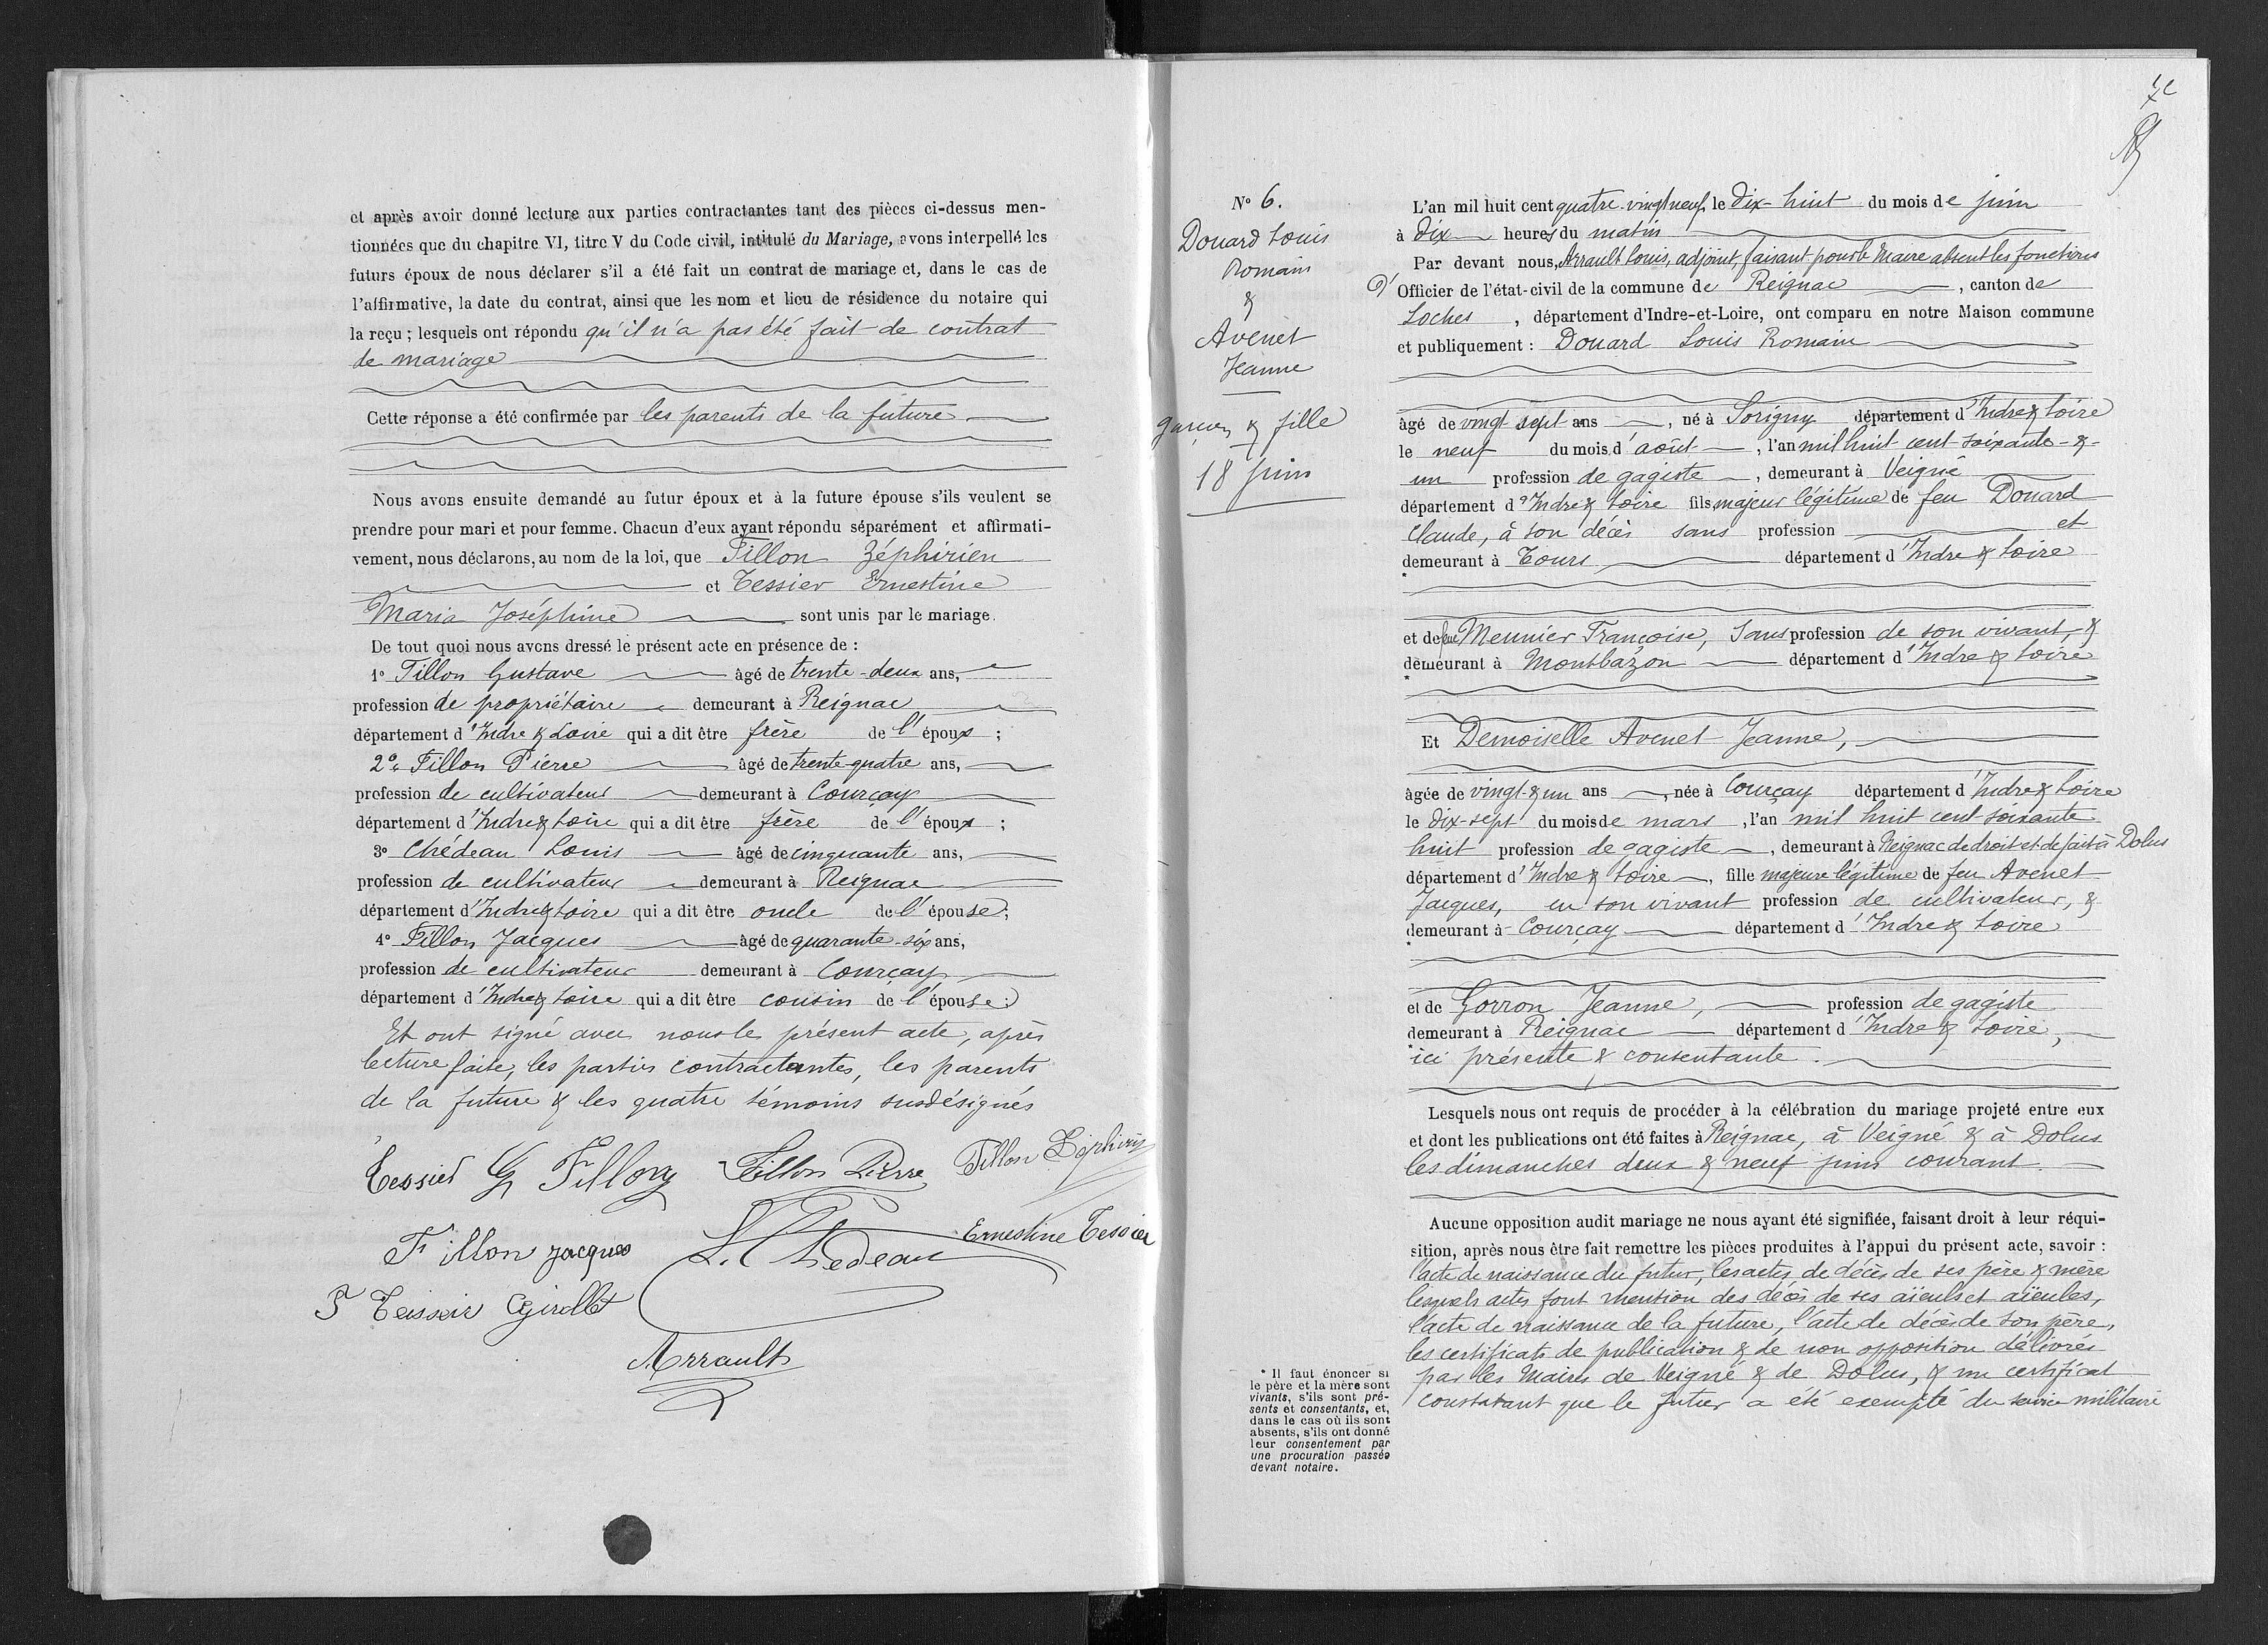 et après avoir donné lecture aux parties contractantes tant des pièces ci-dessus men-
tionnées que du chapitre VI, titre V du Code civil, intitulé du Mariage, avons interpellé les
futurs époux de nous déclarer s'il a été fait un contrat de mariage et, dans le cas de
l'affirmative, la date du contrat, ainsi que les nom et lieu de résidence du notaire qui
la reçu ; lesquels ont répondu qu'il n'a pas été fait de contrat
de mariage
Cette réponse a été confirmée par les parents de la future
Nous avons ensuite demandé au futur époux et à la future épouse s'ils veulent se
prendre pour mari et pour femme. Chacun d'eux ayant répondu séparément et affirmati-
vement, nous déclarons, au nom de la loi, que Fillon Zéphirien
et Tessier Ernestine
Maria Joséphine sont unis par le mariage.
De tout quoi nous avons dressé le présent acte en présence de :
1° Fillon Gustave âgé de trente-deux ans,
profession de propriétaire demeurant à Reignac
département d'Indre & Loire qui a dit être frère de l'époux ;
2° Fillon Pierre âgé de trente-quatre ans,
profession de cultivateur demeurant à Courçay
département d'Indre & Loire qui a dit être frère de l'époux ;
3° Chédeau Louis âgé de cinquante ans,
profession de cultivateur demeurant à Reignac
département d'Indre & Loire qui a dit être oncle de l'épouse ;
4° Fillon Jacques âgé de quarante-six ans,
profession de cultivateur demeurant à Courçay
département d'Indre & Loire qui a dit être cousin de l'épouse ;
Et ont signé avec nous le présent acte, après
lecture faite, les parties contractantes, les parents
de la future & les quatre témoins susdésignés
Tessier G Fillon Fillon Pierre Fillon Zéphirin
Fillon jacques L. Chedeau Ernestine Tessier
Arrault
7e
N° 6.
Douard Louis
Romain
&
Avenet
Jeanne
garçon & fille
18 juin
L'an mil huit cent quatre-vingt neuf, le dix-huit du mois de juin
à dix heures du matin
Par devant nous, Arrault Louis, adjoint, faisant pour le Maire absent les fonctions
d'Officier de l'état-civil de la commune de Reignac, canton de
Loches, département d'Indre-et-Loire, ont comparu en notre Maison commune
et publiquement : Douard Louis Romain
âgé de vingt sept ans, né à Sorigny département d'Indre & Loire
le neuf du mois d'août, l'an mil huit cent soixante-&-
un profession de gagiste, demeurant à Veigné
département d'Indre & Loire fils majeur légitime de feu Douard
Claude, à son décès sans profession et
demeurant à Tours département d'Indre & Loire
*
et de feue Meunier Françoise, sans profession de son vivant, &
demeurant à Montbazon département d'Indre & Loire
*
Et Demoiselle Avenet Jeanne,
âgée de vingt & un ans, née à Courçay département d'Indre & Loire
le dix-sept du mois de mars, l'an mil huit cent soixante
huit profession de gagiste, demeurant à Reignac de droit et de fait à Dolus
département d'Indre & Loire, fille majeure légitime de feu Avenet
Jacques, en son vivant profession de cultivateur, &
demeurant à Courçay département d'Indre & Loire
*
et de Gorron Jeanne, profession de gagiste
demeurant à Reignac département d'Indre & Loire,
* ici présente & consentante.
Lesquels nous ont requis de procéder à la célébration du mariage projeté entre eux
et dont les publications ont été faites à Reignac, à Veigné & à Dolus
les dimanches deux & neuf juin courant.
Aucune opposition audit mariage ne nous ayant été signifiée, faisant droit à leur réqui-
sition, après nous être fait remettre les pièces produites à l'appui du présent acte, savoir :
l'acte de naissance du futur, les actes de décès de ses père & mère
lesquels actes font mention des décès de ses aïeuls et aïeules,
l'acte de naissance de la future, l'acte de décès de son père,
les certificats de publication & de non opposition délivrés
par les Maires de Veigné & de Dolus, & un certificat
constatant que le futur a été exempté du service militaire
* Il faut énoncer si
le père et la mère sont
vivants, s'ils sont pré-
sents et consentants, et,
dans le cas où ils sont
absents, s'ils ont donné
leur consentement par
une procuration passée
devant notaire.